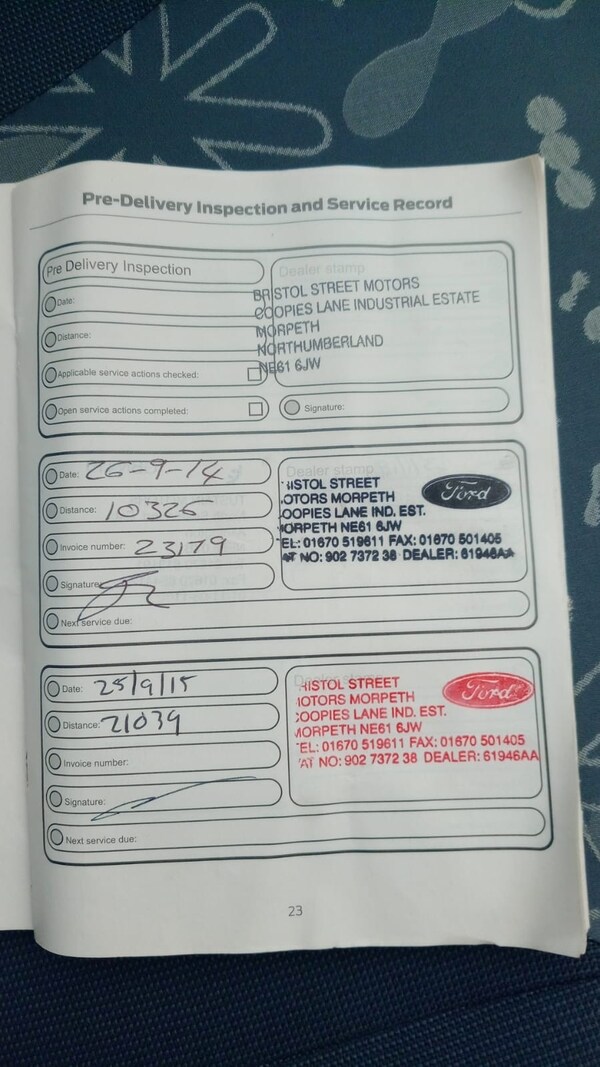 Pre-Delivery Inspection and Service Record
Pre Delivery Inspection
Date:
Distance:
Applicable service actions checked:
Open service actions completed:
Dealer stamp
BRISTOL STREET MOTORS
COOPIES LANE INDUSTRIAL ESTATE
MORPETH
NORTHUMBERLAND
NE61 6JW
Signature:
Date: 26-9-14
Distance: 10326
Invoice number: 23179
Signature
Next service due:
Dealer stamp
RISTOL STREET
OTORS MORPETH
OOPIES LANE IND. EST.
MORPETH NE61 6JW
TEL: 01670 519611 FAX: 01670 501405
AT NO: 902 7372 38 DEALER: 61946AA
Ford
Date: 25/9/15
Distance: 21039
Invoice number:
Signature:
Next service due:
Dealer stamp
RISTOL STREET
MOTORS MORPETH
COOPIES LANE IND. EST.
MORPETH NE61 6JW
TEL: 01670 519611 FAX: 01670 501405
AT NO: 902 7372 38 DEALER: 61946AA
Ford
23